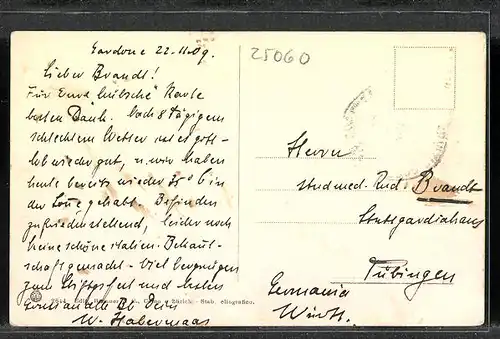 Gardone 22.11.09.
Lieber Brandt!
Für Eure hübsche Karte
besten Dank. Nach 8 tägigem
schlechtem Wetter ist es gott-
lob wieder gut, u. wir haben
heute bereits wieder 35° C in
der Sonne gehabt. Befinden
zufriedenstellend, leider noch
keine schöne Bekannt-
schaft gemacht. Viel Vergnügen
zum Stiftsfest und besten
Dein
W. Habermaas
25060
Herrn
stud. med. Brandt
Stuttgardiahaus
Tübingen
Germania
Württ.
7644 Edit. Zürich. - Stab. eliografico.